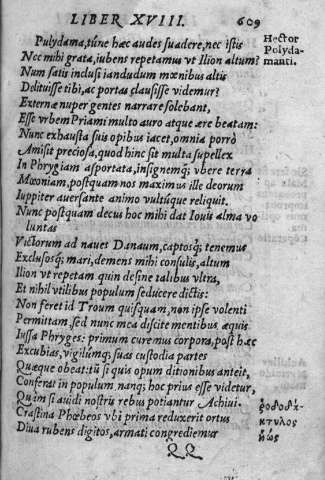 LIBER XVIII. 609
Hector
Polyda-
manti.
Pulydama, tûne hæc audes suadere, nec istis
Nec mihi grata, iubens repetamus vt Ilion altum?
Num satis inclusi iandudum mœnibus altis
Delituisse tibi, ac portas clausisse videmur?
Externæ nuper gentes narrare solebant,
Esse vrbem Priami multo auro atque ære beatam:
Nunc exhausta suis opibus iacet, omnia porrò
Amisit preciosa, quod hinc sit multa supellex
In Phrygiam asportata, insignemq; vbere terra
Mæoniam, postquam nos maximus ille deorum
Iuppiter auersante animo vultúque reliquit.
Nunc postquam decus hoc mihi dat Iouis alma vo
luntas
Victorum ad naues Danaum, captosq; tenemus
Exclusosq; mari, demens mihi consulis, altum
Ilion vt repetam quin desine talibus vltra,
Et nihil vtilibus populum seducere dictis:
Non feret id Troum quisquam, non ipse volenti
Permittam, sed nunc mea discite mentibus æquis
Iussa Phryges: primum curemus corpora, post hæc
Excubias, vigilumq; suas custodia partes
Quæque obeat: tû si quis opum ditionibus anteit,
Conferat in populum, nanq; hoc prius esse videtur,
Quàm si auidi nostris rebus potiantur Achiui.
Crastina Phœbeos vbi prima reduxerit ortus
Diua rubens digitos, armati congrediemur
ῥοδοδά-
κτυλος
ἠώς
QQ